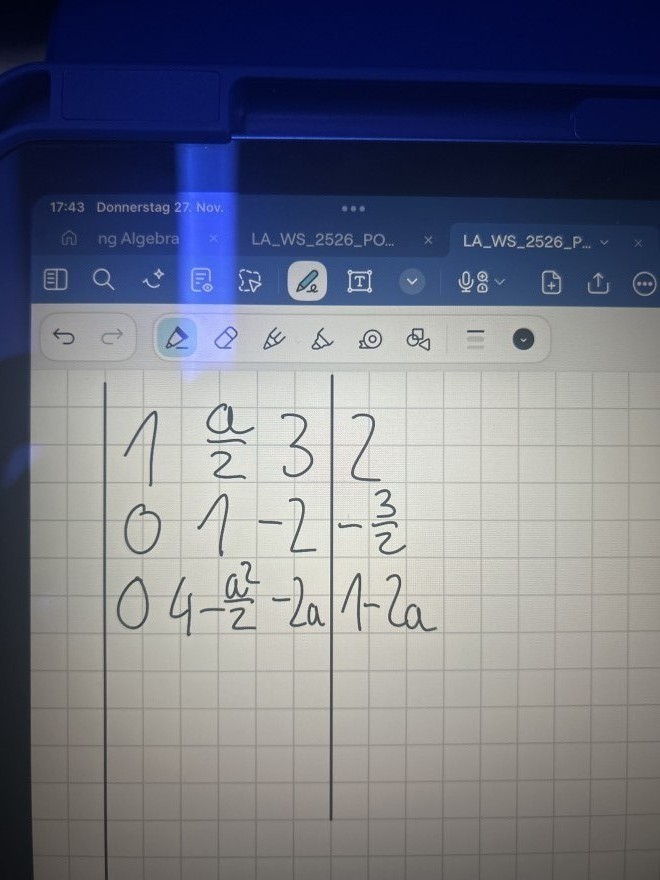 17:43 Donnerstag 27. Nov.
ng Algebra × LA_WS_2526_PO... × LA_WS_2526_P... ×
T
1 a/2 3 | 2
0 1 -2 | -3/2
0 4-a²/2 -2a | 1-2a